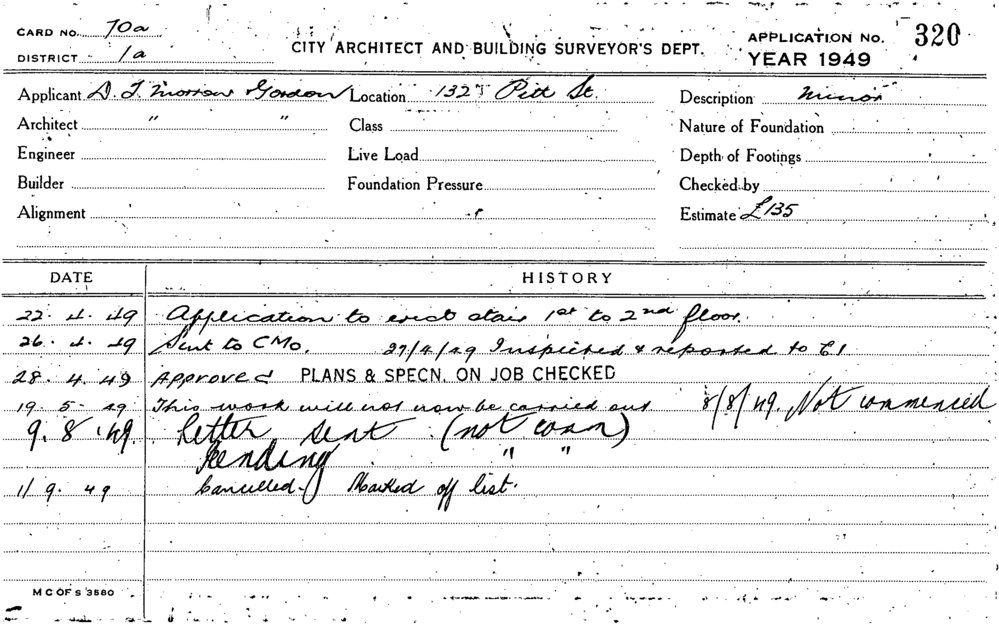 CARD NO. 70a
DISTRICT 1a
CITY ARCHITECT AND BUILDING SURVEYOR'S DEPT.
APPLICATION NO. 320
YEAR 1949
Applicant D. T. Morrow Gordon Location 132 Pitt St. Description Minor
Architect " " Class Nature of Foundation
Engineer Live Load Depth of Footings
Builder Foundation Pressure Checked by
Alignment Estimate £135
DATE HISTORY
22. 4. 49 Application to erect stair 1st to 2nd floor.
26. 4. 49 Sent to CMO. 27/4/49 Inspected & reported to C1
28. 4. 49 Approved PLANS & SPECN. ON JOB CHECKED
19. 5. 49 This work will not now be carried out 8/8/49. Not commenced
9. 8. 49. Letter sent (not comm)
Pending " "
1/9. 49 Cancelled. Marked off list.
M C OF S 3580